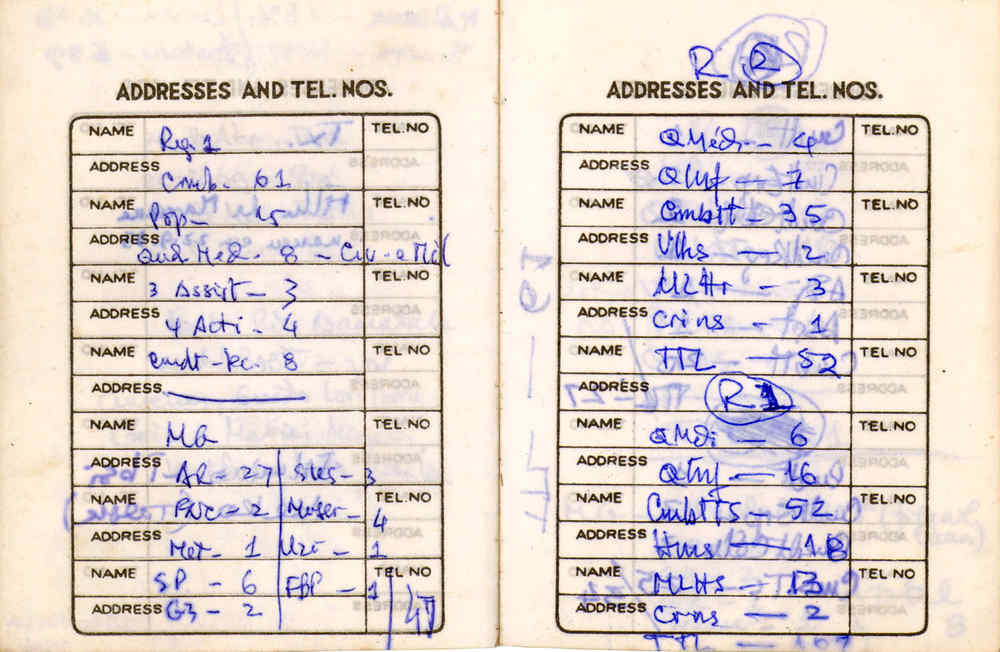 ADDRESSES AND TEL. NOS.
NAME Reg. 1 TEL.NO
ADDRESS Cmb- 61
NAME Pop- 15 TEL.NO
ADDRESS Qud Med. 8 - Civ-e Mil
NAME 3 Assist - 3 TEL.NO
ADDRESS 4 Acti - 4
NAME 8 TEL.NO
ADDRESS
NAME MG TEL.NO
ADDRESS AR - 27 SKS - 3
NAME - 2 Mauser - 4 TEL.NO
ADDRESS Met - 1 Uzi - 1
NAME SP - 6 FBP - 1 TEL.NO
ADDRESS G3 - 2 47
R. 2
ADDRESSES AND TEL. NOS.
NAME QMéd - 4 TEL.NO
ADDRESS QInf - 7
NAME Cmbtt - 35 TEL.NO
ADDRESS Vlhs - 2
NAME MLHr - 3 TEL.NO
ADDRESS Crins - 1
NAME TTL - 52 TEL.NO
ADDRESS R1
NAME QMdi - 6 TEL.NO
ADDRESS QInf - 16
NAME CmbtTs - 52 TEL.NO
ADDRESS Hms - 18
NAME MLHS - 13 TEL.NO
ADDRESS Crns - 2
TTL - 107